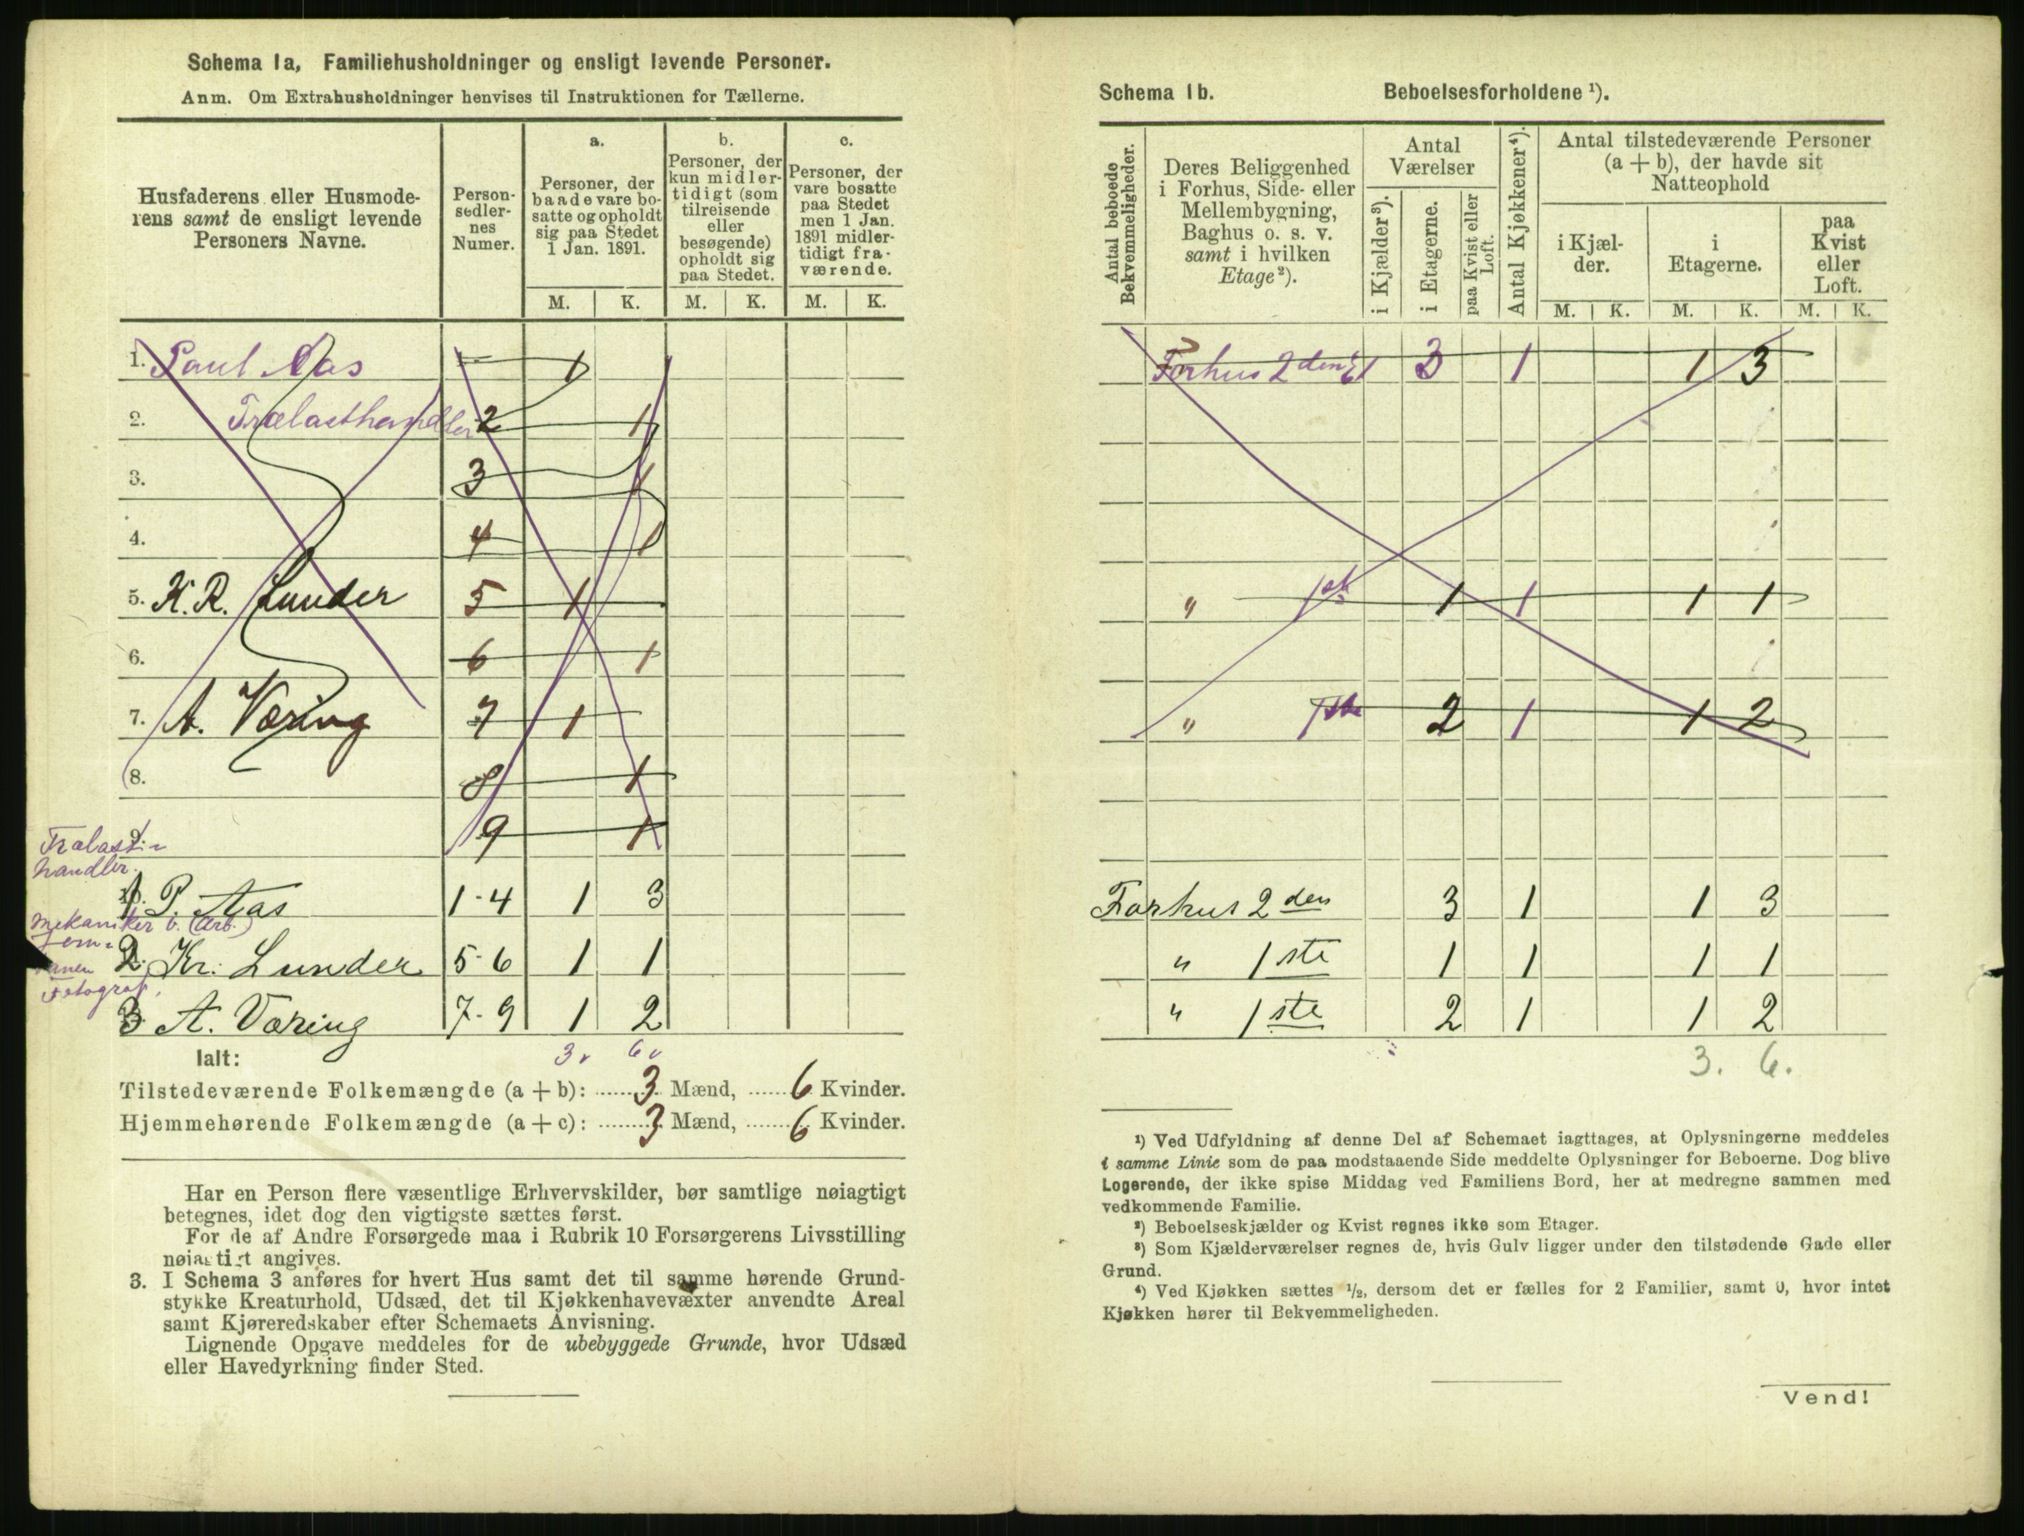 Schema 1a, Familiehusholdninger og ensligt levende Personer.
Anm. Om Extrahusholdninger henvises til Instruktionen for Tællerne.
Husfaderens eller Husmode-
rens samt de ensligt levende
Personers Navne.
Person-
sedler-
nes
Numer.
a.
Personer, der
baade vare bo-
satte og opholdt
sig paa Stedet
1 Jan. 1891.
b.
Personer, der
kun midler-
tidigt (som
tilreisende
eller
besøgende)
opholdt sig
paa Stedet.
c.
Personer, der
vare bosatte
paa Stedet
men 1 Jan.
1891 midler-
tidigt fra-
værende.
M. K. M. K. M. K.
1. Paul Aas 1 1
2. Trælasthandler 2 1
3. 3 1
4. 4 1
5. K. R. Lunder 5 1
6. 6 1
7. A. Væring 7 1
8. 8 1
9. 9 1
Trælast-
handler.
1 P. Aas 1-4 1 3
Mekaniker v. (Arb.)
2. Kr. Lunder 5-6 1 1
Fotograf.
3 A. Væring 7-9 1 2
Ialt: 3 6
Tilstedeværende Folkemængde (a + b): 3 Mænd, 6 Kvinder.
Hjemmehørende Folkemængde (a + c): 3 Mænd, 6 Kvinder.
Har en Person flere væsentlige Erhvervskilder, bør samtlige nøiagtigt
betegnes, idet dog den vigtigste sættes først.
For de af Andre Forsørgede maa i Rubrik 10 Forsørgerens Livsstilling
nøiagtigt angives.
3. I Schema 3 anføres for hvert Hus samt det til samme hørende Grund-
stykke Kreaturhold, Udsæd, det til Kjøkkenhavevæxter anvendte Areal
samt Kjøreredskaber efter Schemaets Anvisning.
Lignende Opgave meddeles for de ubebyggede Grunde, hvor Udsæd
eller Havedyrkning finder Sted.
Schema 1b. Beboelsesforholdene ¹).
Antal beboede
Bekvemmeligheder.
Deres Beliggenhed
i Forhus, Side- eller
Mellembygning,
Baghus o. s. v.
samt i hvilken
Etage²).
Antal
Værelser
i Kjælder³).
i Etagerne.
paa Kvist eller
Loft.
Antal Kjøkkener⁴).
Antal tilstedeværende Personer
(a + b), der havde sit
Natteophold
i Kjæl-
der.
i
Etagerne.
paa
Kvist
eller
Loft.
M. K. M. K. M. K.
Forhus 2den 3 1 1 3
" 1ste 1 1 1 1
" 1ste 2 1 1 2
Forhus 2den 3 1 1 3
" 1ste 1 1 1 1
" 1ste 2 1 1 2
3. 6.
¹) Ved Udfyldning af denne Del af Schemaet iagttages, at Oplysningerne meddeles
i samme Linie som de paa modstaaende Side meddelte Oplysninger for Beboerne. Dog blive
Logerende, der ikke spise Middag ved Familiens Bord, her at medregne sammen med
vedkommende Familie.
²) Beboelseskjælder og Kvist regnes ikke som Etager.
³) Som Kjælderværelser regnes de, hvis Gulv ligger under den tilstødende Gade eller
Grund.
⁴) Ved Kjøkken sættes ½, dersom det er fælles for 2 Familier, samt 0, hvor intet
Kjøkken hører til Bekvemmeligheden.
Vend!